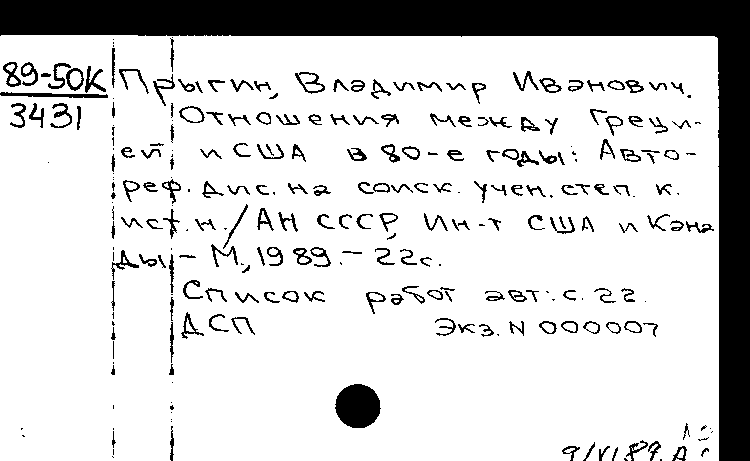 89-50К Прыгин, Владимир Иванович.
3431 Отношения между Греци-
ей и США в 80-е годы: Авто-
реф. дис. на соиск. учен. степ. к.
ист. н. / АН СССР, Ин-т США и Кана
ды. - М., 1989. - 22с.
Список работ авт.: с. 22.
ДСП Экз. N 000007
9/VI 89.